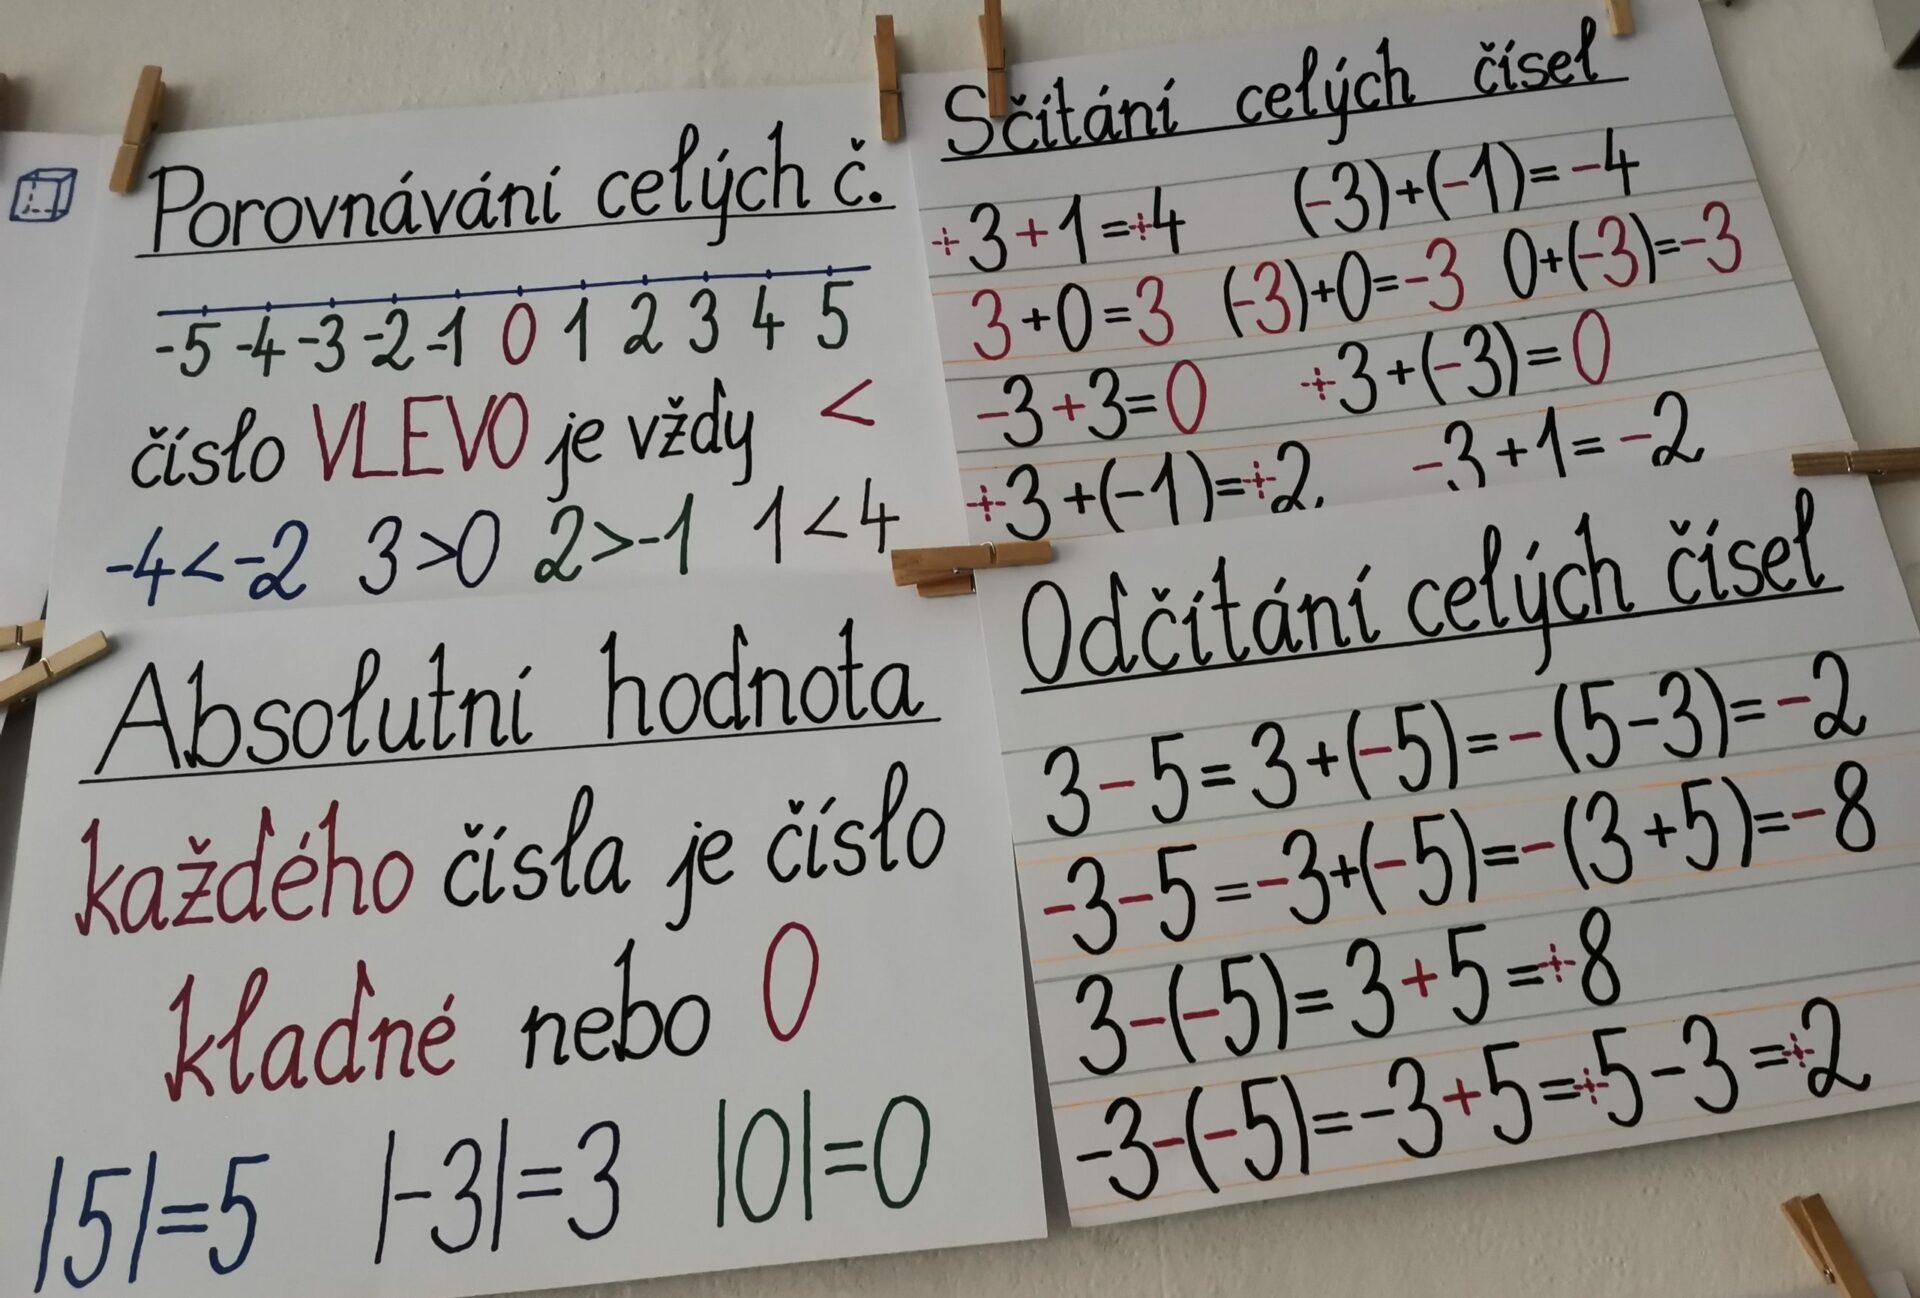 Porovnávání celých č.
-5 -4 -3 -2 -1 0 1 2 3 4 5
číslo VLEVO je vždy <
-4<-2 3>0 2>-1 1<4
Sčítání celých čísel
+3+1=+4 (-3)+(-1)=-4
3+0=3 (-3)+0=-3 0+(-3)=-3
-3+3=0 +3+(-3)=0
+3+(-1)=+2 -3+1=-2
Absolutní hodnota
každého čísla je číslo
kladné nebo 0
|5|=5 |-3|=3 |0|=0
Odčítání celých čísel
3-5=3+(-5)=-(5-3)=-2
-3-5=-3+(-5)=-(3+5)=-8
3-(-5)=3+5=+8
-3-(-5)=-3+5=+5-3=+2